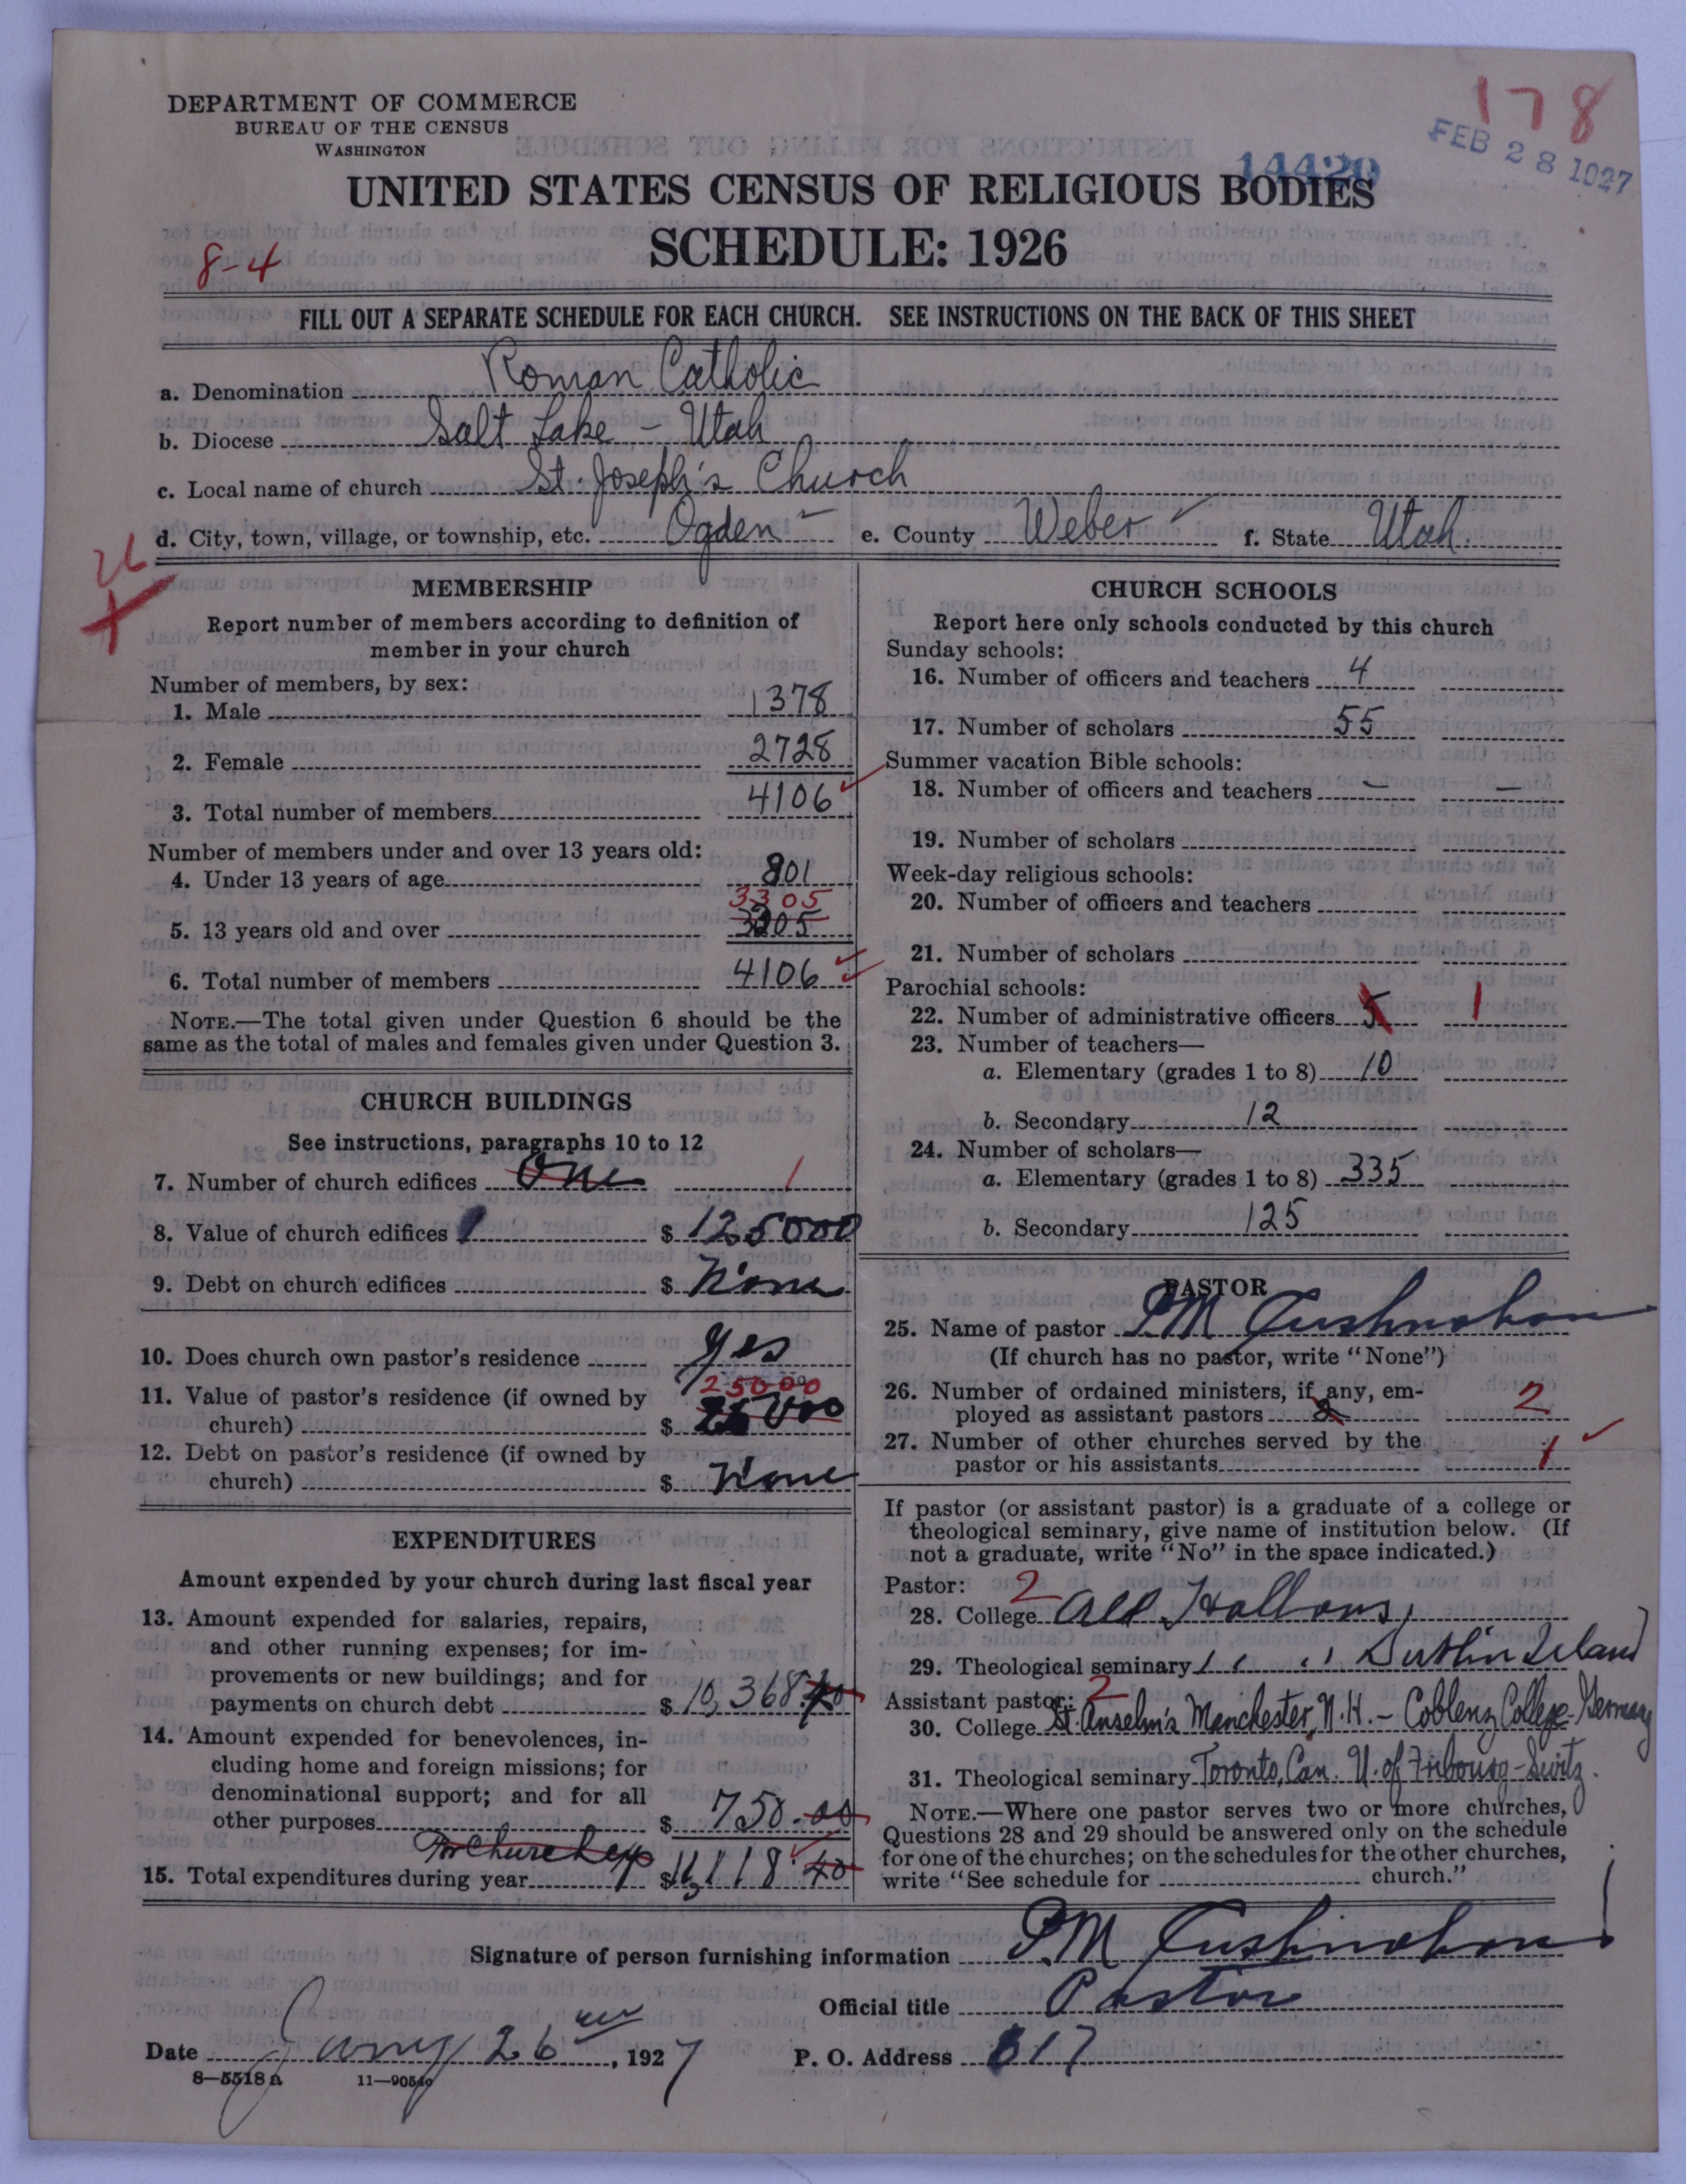 178
FEB 28 1927
14420
DEPARTMENT OF COMMERCE
BUREAU OF THE CENSUS
WASHINGTON
UNITED STATES CENSUS OF RELIGIOUS BODIES
SCHEDULE: 1926
8-4
FILL OUT A SEPARATE SCHEDULE FOR EACH CHURCH. SEE INSTRUCTIONS ON THE BACK OF THIS SHEET
a. Denomination Roman Catholic
b. Diocese Salt Lake - Utah
c. Local name of church St. Joseph's Church
d. City, town, village, or township, etc. Ogden e. County Weber f. State Utah
26
MEMBERSHIP
Report number of members according to definition of
member in your church
Number of members, by sex:
1. Male 1378
2. Female 2728
3. Total number of members 4106
Number of members under and over 13 years old:
4. Under 13 years of age 801
3305
5. 13 years old and over 3205
6. Total number of members 4106
NOTE.—The total given under Question 6 should be the
same as the total of males and females given under Question 3.
CHURCH BUILDINGS
See instructions, paragraphs 10 to 12
7. Number of church edifices One 1
8. Value of church edifices $ 125000
9. Debt on church edifices $ None
10. Does church own pastor's residence Yes
25000
11. Value of pastor's residence (if owned by
church) $ 25000
12. Debt on pastor's residence (if owned by
church) $ None
EXPENDITURES
Amount expended by your church during last fiscal year
13. Amount expended for salaries, repairs,
and other running expenses; for im-
provements or new buildings; and for
payments on church debt $ 10,368.40
14. Amount expended for benevolences, in-
cluding home and foreign missions; for
denominational support; and for all
other purposes $ 750.00
15. Total expenditures during year $ 11,118.40
CHURCH SCHOOLS
Report here only schools conducted by this church
Sunday schools:
16. Number of officers and teachers 4
17. Number of scholars 55
Summer vacation Bible schools:
18. Number of officers and teachers — —
19. Number of scholars
Week-day religious schools:
20. Number of officers and teachers
21. Number of scholars
Parochial schools:
22. Number of administrative officers 5 1
23. Number of teachers—
a. Elementary (grades 1 to 8) 10
b. Secondary 12
24. Number of scholars—
a. Elementary (grades 1 to 8) 335
b. Secondary 125
PASTOR
25. Name of pastor P.M. Cushnahan
(If church has no pastor, write "None")
26. Number of ordained ministers, if any, em-
ployed as assistant pastors 2 2
27. Number of other churches served by the
pastor or his assistants 1
If pastor (or assistant pastor) is a graduate of a college or
theological seminary, give name of institution below. (If
not a graduate, write "No" in the space indicated.)
Pastor: 2
28. College All Hallows,
29. Theological seminary " " Dublin Ireland
Assistant pastor: 2
30. College St. Anselm's Manchester, N.H. - Coblenz College - Germany
31. Theological seminary Toronto, Can. U. of Fribourg - Switz.
NOTE.—Where one pastor serves two or more churches,
Questions 28 and 29 should be answered only on the schedule
for one of the churches; on the schedules for the other churches,
write "See schedule for church."
Signature of person furnishing information P.M. Cushnahan
Official title Pastor
Date 26, 1927 P. O. Address 617
8—5518a 11—9054o